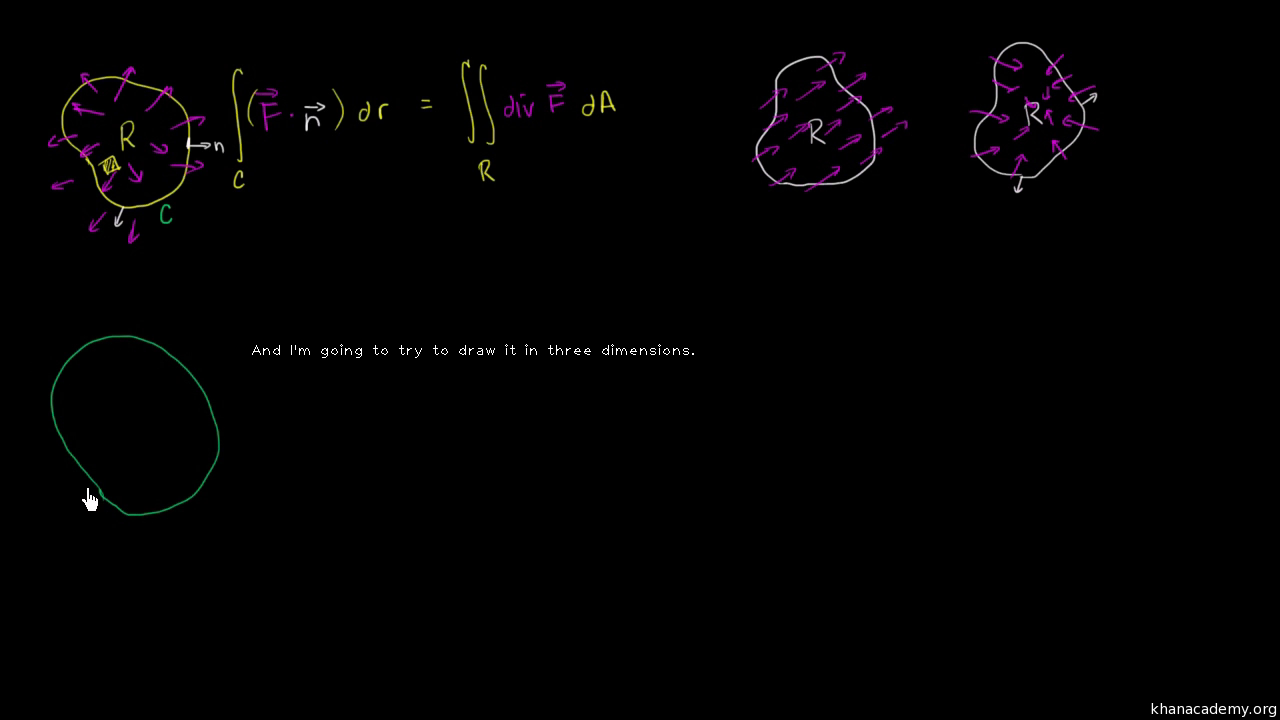 R
n
C
∫ (F⃗ · n⃗) dr = ∬ div F⃗ dA
C
R
R
R
And I'm going to try to draw it in three dimensions.
khanacademy.org